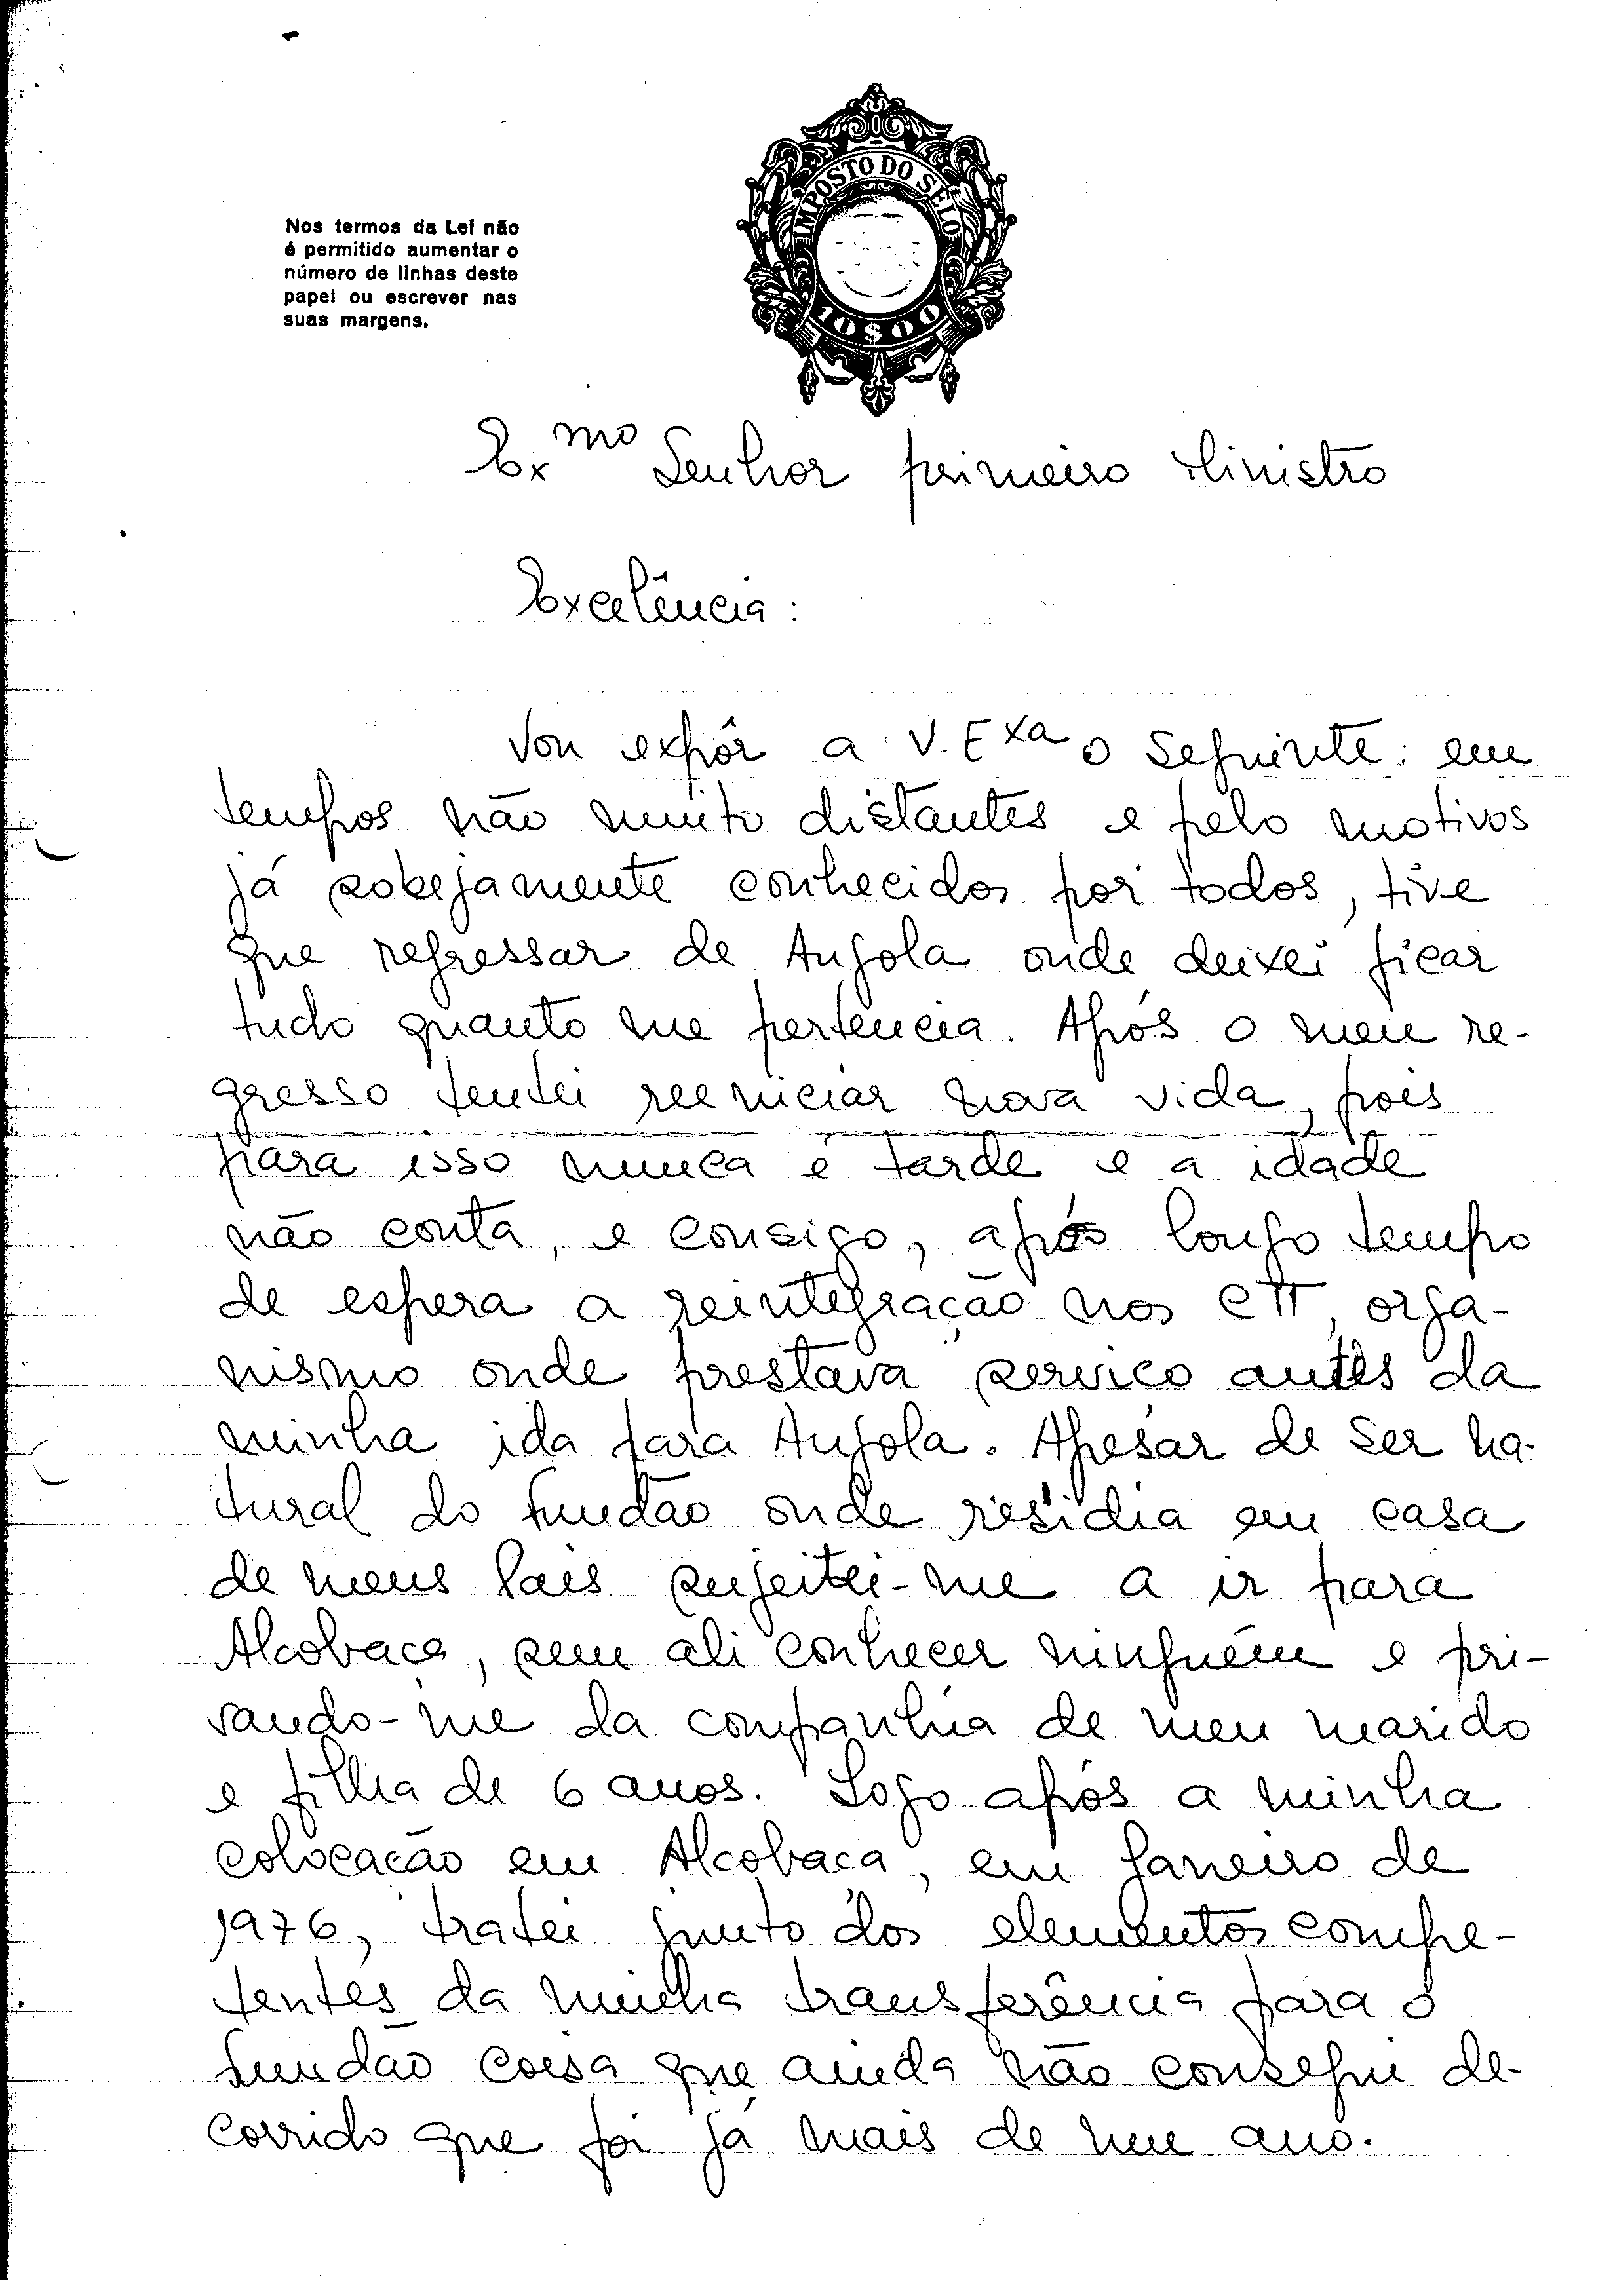 Nos termos da Lei não
é permitido aumentar o
número de linhas deste
papel ou escrever nas
suas margens.
IMPOSTO DO SELO
10$00
Exmo Senhor primeiro Ministro
Excelência:
Vou expôr a V. Exa o seguinte: em
tempos não muito distantes e pelo motivos
já sobejamente conhecidos por todos, tive
que regressar de Angola onde deixei ficar
tudo quanto me pertencia. Após o meu re-
gresso tentei reeniciar nova vida, pois
para isso nunca é tarde e a idade
não conta, e consigo, após longo tempo
de espera a reintegração nos CTT, orga-
nismo onde prestava serviço antes da
minha ida para Angola. Apesar de ser na-
tural do Fundão onde residia em casa
de meus Pais sujeitei-me a ir para
Alcobaça, sem ali conhecer ninguém e pri-
vando-me da companhia de meu marido
e filha de 6 anos. Logo após a minha
colocação em Alcobaça, em Janeiro de
1976, tratei junto dos elementos compe-
tentes da minha transferência para o
Fundão coisa que ainda não consegui de-
corrido que foi já mais de um ano.